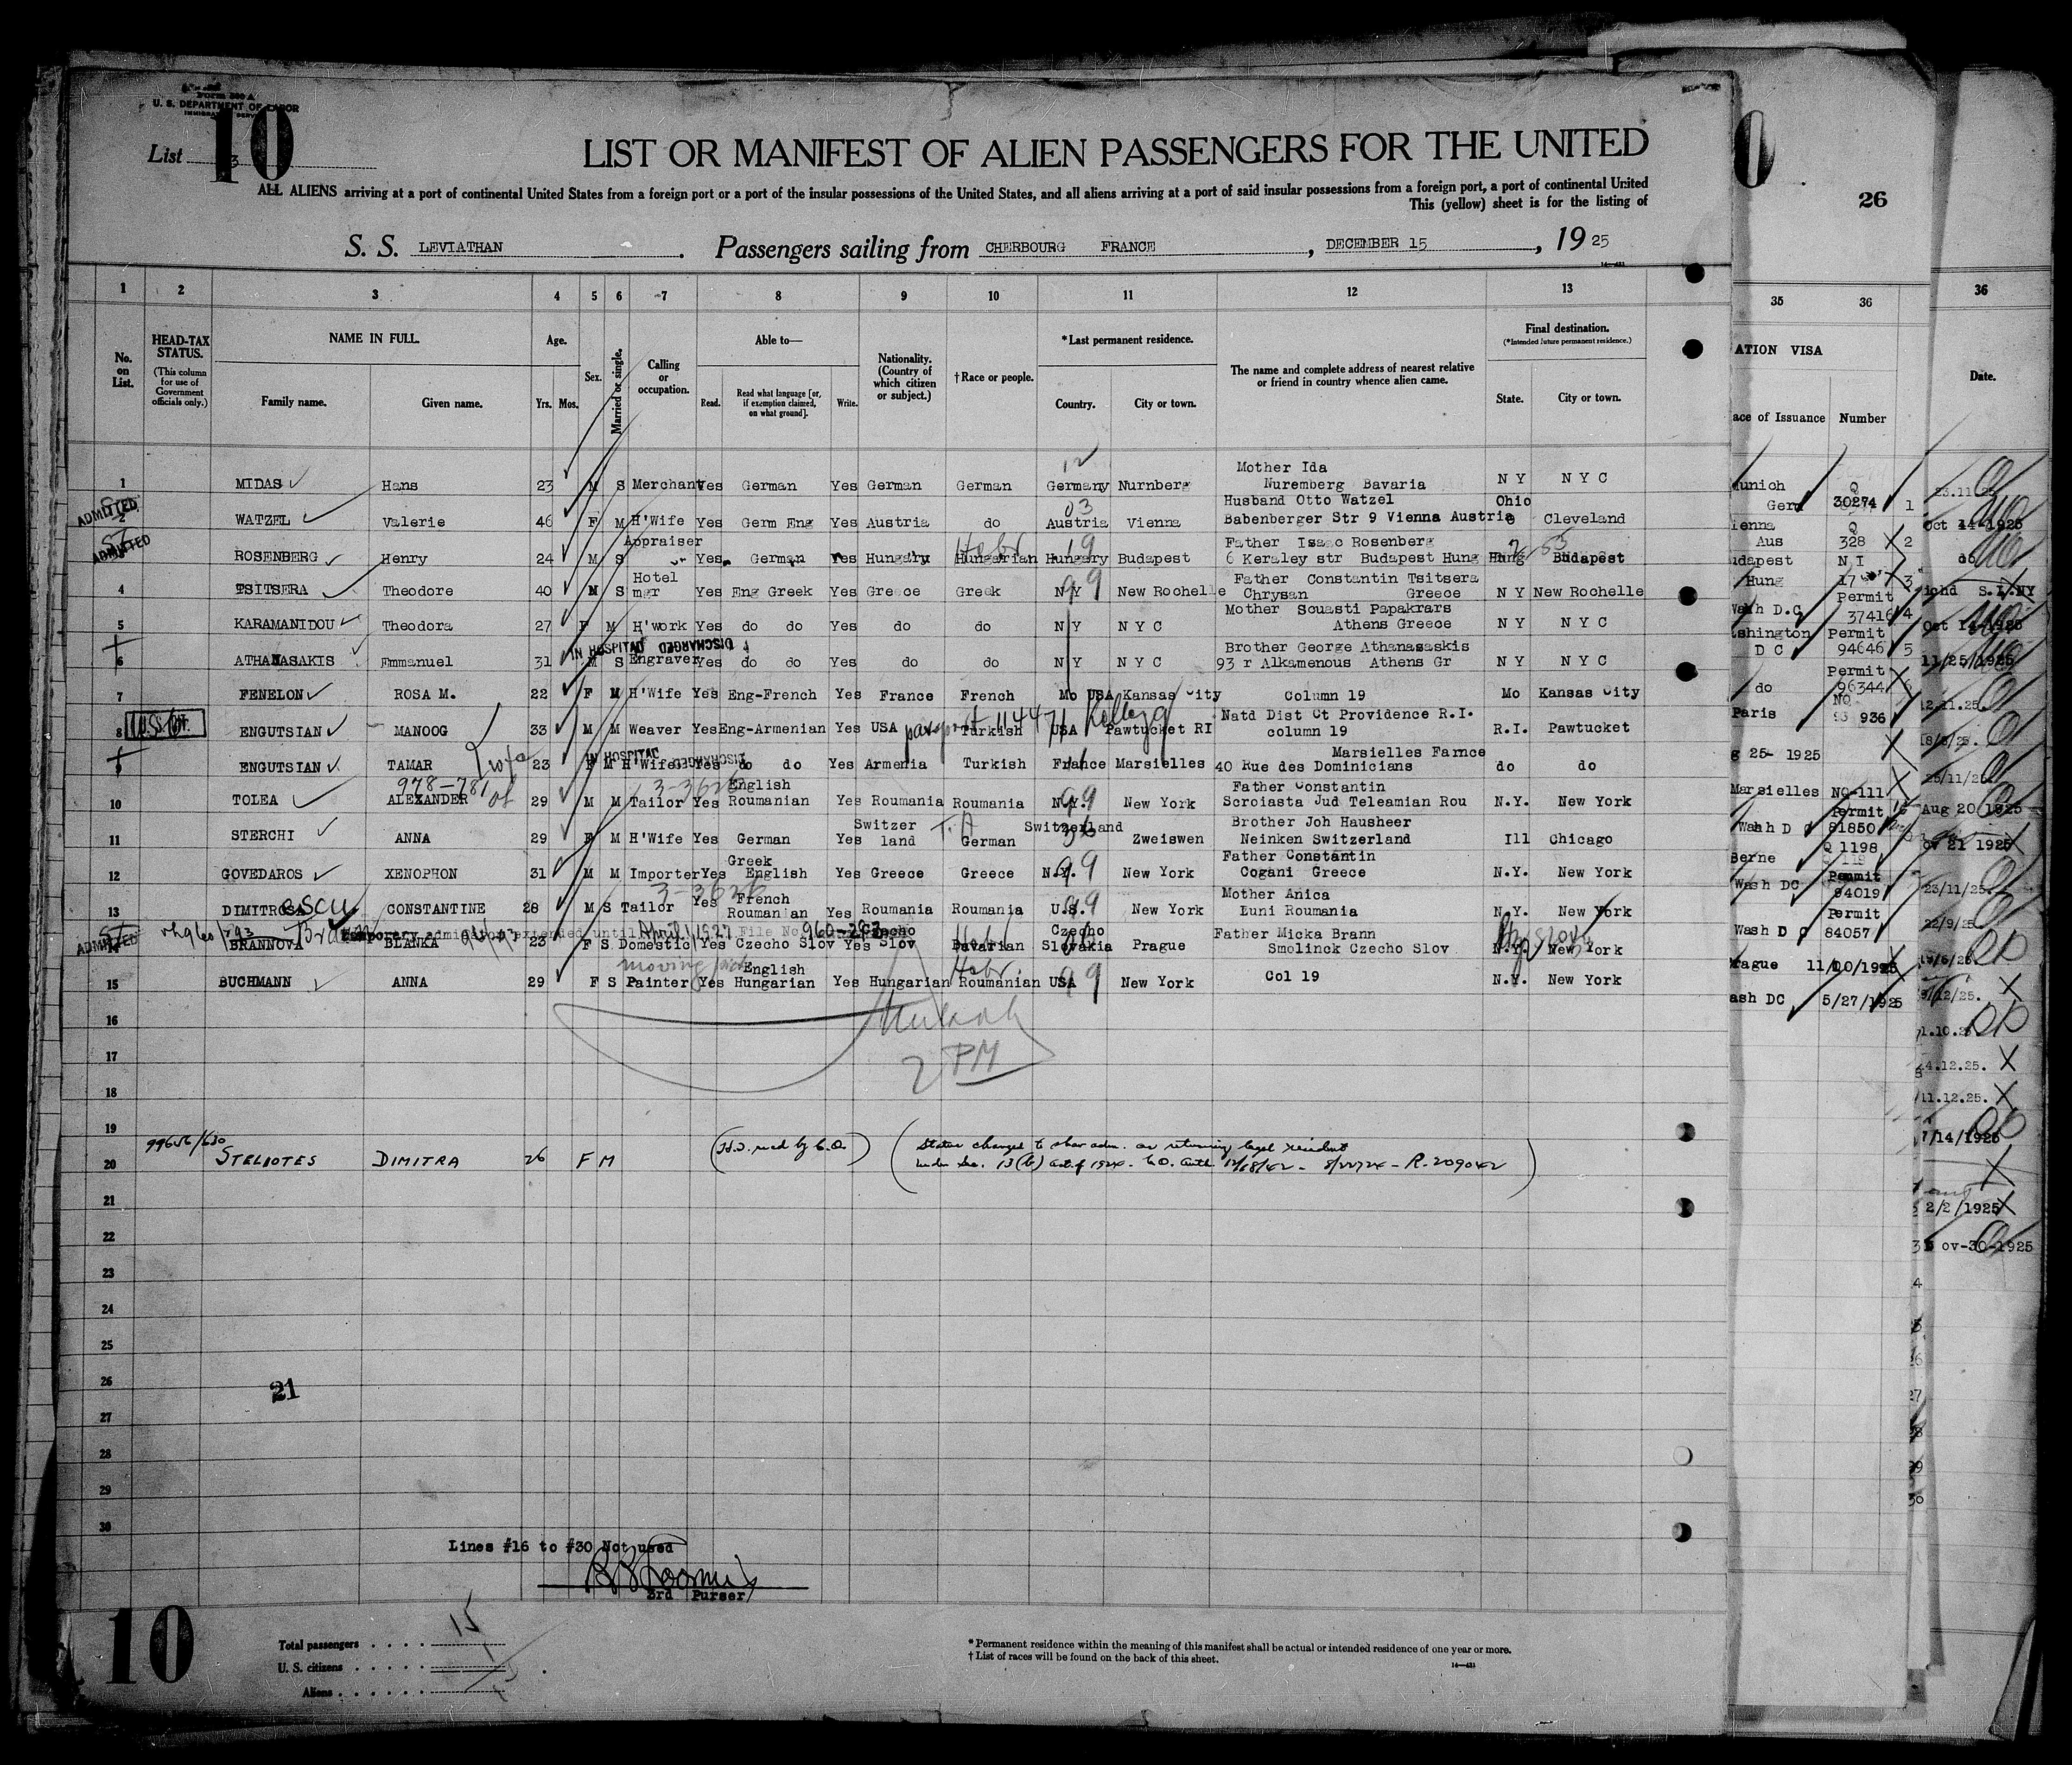 Form 500 A
U. S. DEPARTMENT OF LABOR
IMMIGRATION SERVICE
10
List 3
LIST OR MANIFEST OF ALIEN PASSENGERS FOR THE UNITED
ALL ALIENS arriving at a port of continental United States from a foreign port or a port of the insular possessions of the United States, and all aliens arriving at a port of said insular possessions from a foreign port, a port of continental United
This (yellow) sheet is for the listing of
S. S. LEVIATHAN . Passengers sailing from CHERBOURG FRANCE , DECEMBER 15 , 19 25
26
1 2 3 4 5 6 7 8 9 10 11 12 13 35 36 36
No. on List. HEAD-TAX STATUS. (This column for use of Government officials only.) NAME IN FULL. Age. Sex. Married or single. Calling or occupation. Able to— Nationality. (Country of which citizen or subject.) †Race or people. *Last permanent residence. The name and complete address of nearest relative or friend in country whence alien came. Final destination. (*Intended future permanent residence.)
Family name. Given name. Yrs. Mos. Read. Read what language [or, if exemption claimed, on what ground]. Write. Country. City or town. State. City or town.
ATION VISA
ace of Issuance Number
Date.
1 MIDAS Hans 23 M S Merchant Yes German Yes German German Germany Nurnberg Mother Ida Nuremberg Bavaria N Y N Y C
ADMITTED
2 WATZEL Valerie 46 F M H'Wife Yes Germ Eng Yes Austria do Austria Vienna Husband Otto Watzel Babenberger Str 9 Vienna Austria Ohio Cleveland
ADMITTED
ROSENBERG Henry 24 M S Appraiser Yes German Yes Hungary Hungarian Hebr Hungary Budapest Father Isaac Rosenberg 6 Keraley str Budapest Hung Hung Budapest
4 TSITSERA Theodore 40 M S Hotel mgr Yes Eng Greek Yes Greece Greek N Y New Rochelle Father Constantin Tsitsera Chrysan Greece N Y New Rochelle
5 KARAMANIDOU Theodora 27 F M H'work Yes do do Yes do do N Y N Y C Mother Souasti Papakrars Athens Greece N Y N Y C
IN HOSPITAL DISCHARGED
6 ATHANASAKIS Emmanuel 31 M S Engraver Yes do do Yes do do N Y N Y C Brother George Athanasaskis 93 r Alkamenous Athens Gr N Y N Y C
7 FENELON ROSA M. 22 F M H'Wife Yes Eng-French Yes France French Mo USA Kansas City Column 19 Mo Kansas City
8 U.S. Cit. ENGUTSIAN MANOOG 33 M M Weaver Yes Eng-Armenian Yes USA passport 114471 Turkish USA Pawtucket RI Natd Dist Ct Providence R.I. column 19 R.I. Pawtucket
IN HOSPITAL DISCHARGED
9 ENGUTSIAN TAMAR wife of 23 F M H'Wife Yes do do Yes Armenia Turkish France Marsielles Marsielles Farnce 40 Rue des Dominicians do do
978-781
10 TOLEA ALEXANDER 29 M M Tailor 3-3626 Yes English Roumanian Yes Roumania Roumania N.Y. New York Father Constantin Scroiasta Jud Teleamian Rou N.Y. New York
11 STERCHI ANNA 29 F M H'Wife Yes German Yes Switzer land German Switzerland Zweiswen Brother Joh Hausheer Neinken Switzerland Ill Chicago
12 GOVEDAROS XENOPHON 31 M M Importer Yes Greek English Yes Greece Greece N.Y. New York Father Constantin Cogani Greece N.Y. New York
13 DIMITROSA escu CONSTANTINE 28 M S Tailor 3-3626 Yes French Roumanian Yes Roumania Roumania U.S. New York Mother Anica Luni Roumania N.Y. New York
temporary admission extended until April 1 1927 File No. 960-293
ADMITTED
BRANNOVA BLANKA 23 F S Domestic Yes Czecho Slov Yes Czecho Slov Bavarian Hebr Czecho Slovakia Prague Father Micka Brann Smolinck Czecho Slov N.Y. New York
15 BUCHMANN ANNA 29 F S Painter Yes English Hungarian Yes Hungarian Roumanian Hebr USA New York Col 19 N.Y. New York
16
2 PM
17
18
19
99656/630
20 STELIOTES DIMITRA 26 F M (H.T. rec'd by C.O.) (Status changed to show adm. as returning legal resident under Sec. 13 (b) Act of 1924 - C.O. auth 12/18/42 - 8/22724 - R-209042)
21
22
23
24
25
26
21
27
28
29
30
Lines #16 to #30 Not used
3rd Purser
10
Total passengers 15
U. S. citizens 1
Aliens
* Permanent residence within the meaning of this manifest shall be actual or intended residence of one year or more.
† List of races will be found on the back of this sheet.
14—431
unich Gerd Q 30274 1
ienna Aus Q 328 2
udapest Hung N I 17 3
Wash D.C Permit 37416 4
shington D C Permit 94646 5
do Permit 96344 6
Paris NQ 936
g 25- 1925
Marsielles NQ-111
Wash D C Permit 81850
Berne Q 1198
Wash DC Permit 94019
Wash D C Permit 84057
rague 11/10/1925
ash DC 5/27/1925
23.11.25
Oct 14-1925
do
ichd S.I.NY
Oct 14-1925
11/25/1925
12.11.25.
18/8/25.
25/11/25.
Aug 20 1925
ov 21 1925
23/11/25.
22/9/25.
9/12/25.
1.10.25
4.12.25.
11.12.25.
7/14/1925
2/2/1925
ov-30-1925